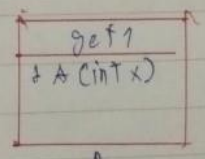 get 1
+ A (int x)